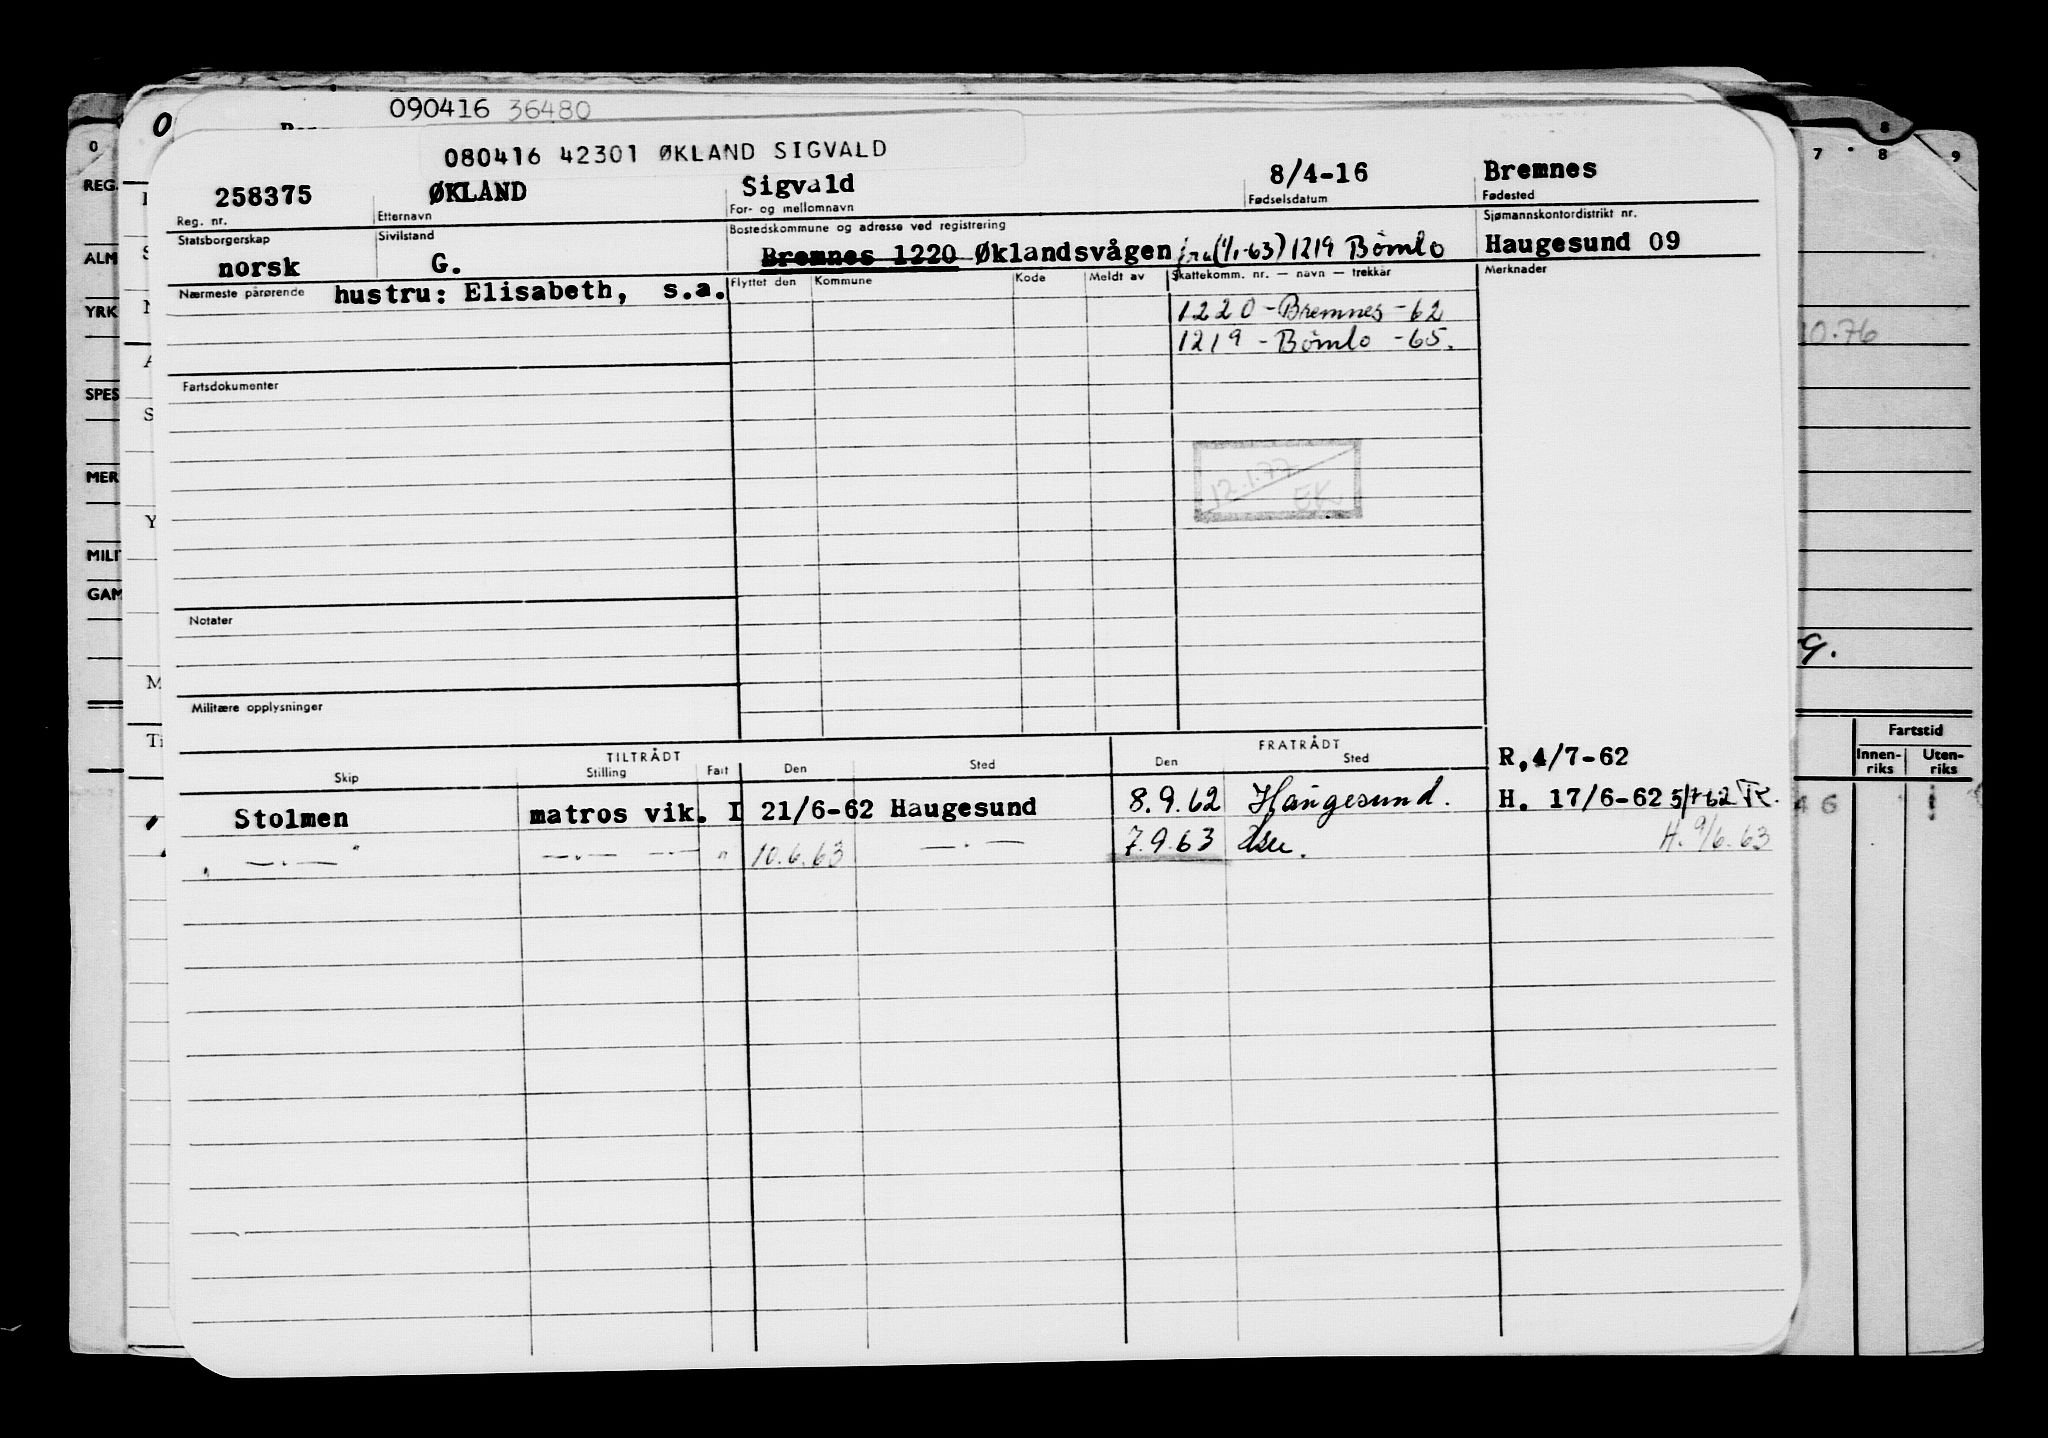 090416 36480
080416 42301 ØKLAND SIGVALD
258375 ØKLAND Sigvald 8/4-16 Bremnes
Reg. nr. Etternavn For- og mellomnavn Fødselsdatum Fødested
Statsborgerskap Sivilstand Bostedskommune og adresse ved registrering Sjømannskontordistrikt nr.
norsk G. Bremnes 1220 Øklandsvågen fra (1/1-63) 1219 Bömlo Haugesund 09
Nærmeste pårørende hustru: Elisabeth, s.a. Flyttet den Kommune Kode Meldt av Skattekomm. nr. — navn — trekkår Merknader
1220 - Bremnes - 62
1219 - Bömlo - 65.
Fartsdokumenter
12.1.77
EK
Notater
Militære opplysninger
TILTRÅDT FRATRÅDT
Skip Stilling Fart Den Sted Den Sted
R,4/7-62
Stolmen matros vik. I 21/6-62 Haugesund 8.9.62 Haugesund. H. 17/6-62 5/7-62 TK.
" — . — " — . — — . — " 10.6.63 — . — 7.9.63 H. 9/6.63
0
REG.
ALM
YRK
SPES
MER
MILIT
GAM
0
S
N
A
S
Y
M
Ti
7 8 9
8
10.76
g.
Fartstid
Innen-riks Uten-riks
46